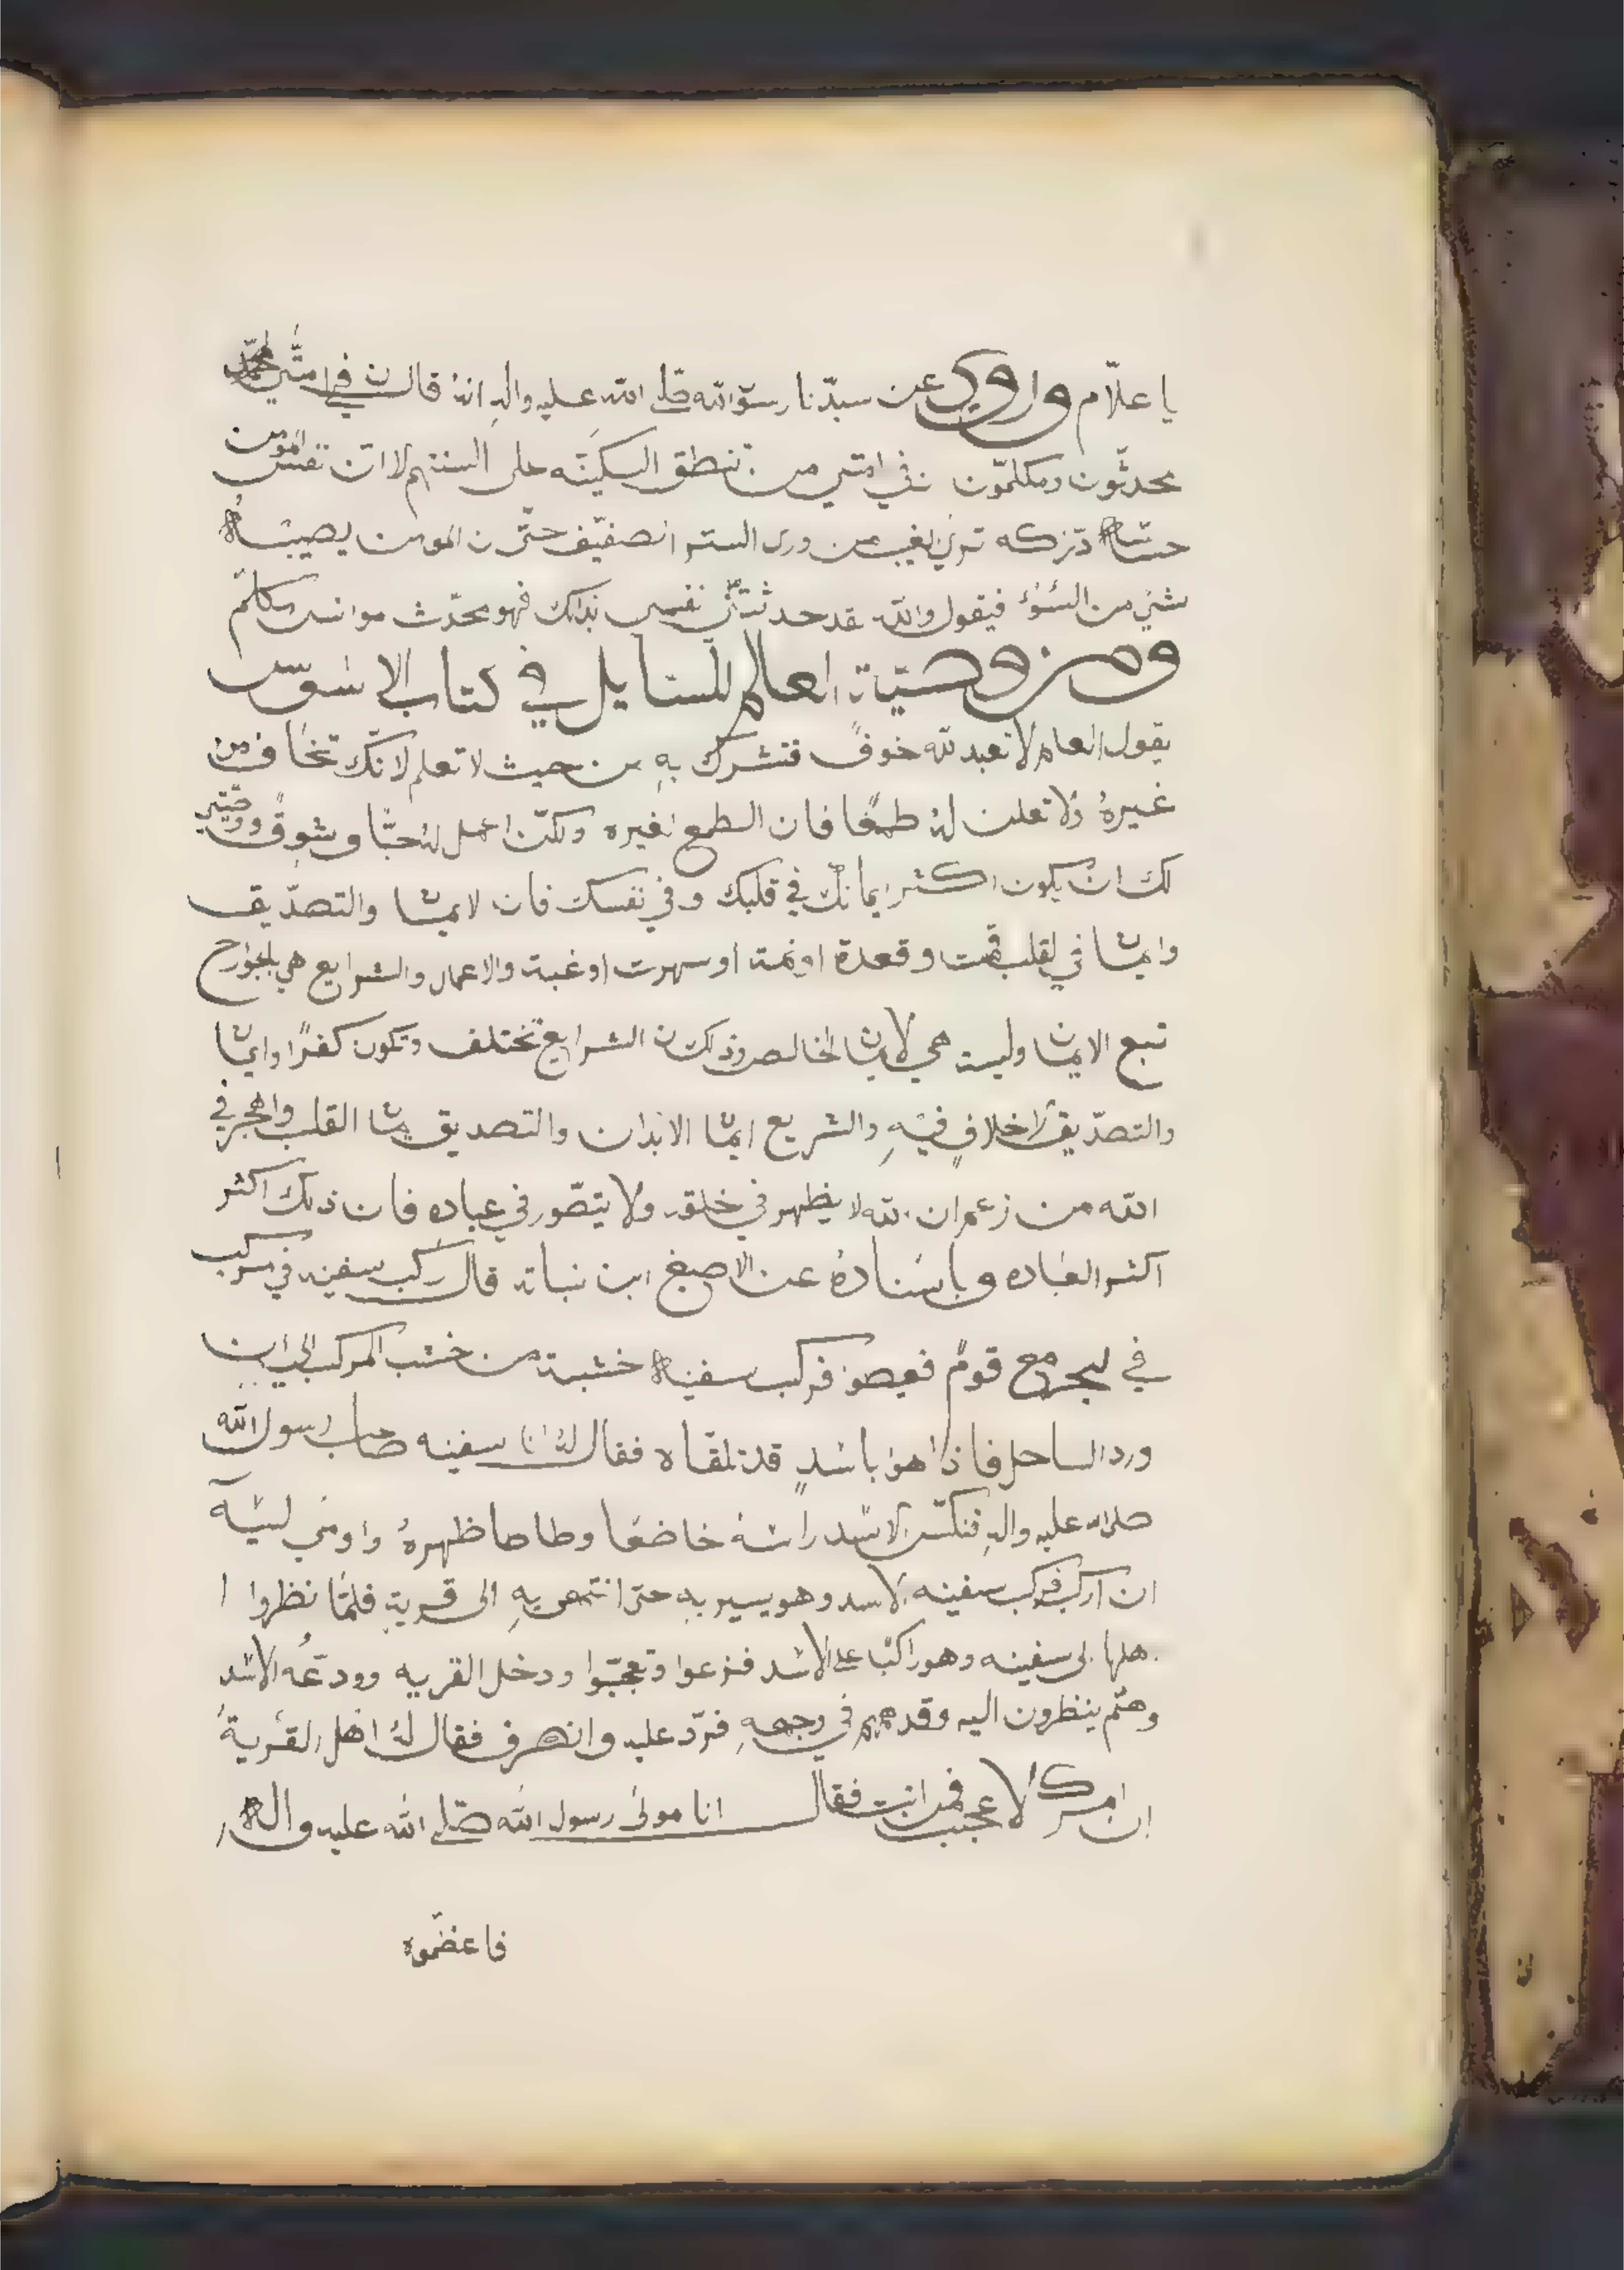 يا علّام واروي عن سيّدنا رسول الله صلّى الله عليه واله انهُ قال ن في امتي
محدثّون ومكلمّون نفي امتي من تنطق السكينه على السنتهم لا ان نفس المومن
حساسه تركه ترى الغيب من ورى الستر الصفيّف حتّى ن المومن يصيبه
شي من السوُ فيقول والله قد حدثتني نفسي بذلك فهو محدّث موانس مكلّم
ومن وصيّة العالم للسايل في كتاب الاسوس
يقول العالم لا تعبد الله خوفً فتشرك بهِ من حيث لا تعلم لانّك تخاف من
غيرهُ ولا تعلن لهُ طمعًا فان الطمع لغيره ولكن اعمل لهُ حبًّا وشوقً ووصّيتي
لك ان يكون اكثر ايمانك في قلبك وفي نفسك فان لايمان والتصدّيق
وايمان في لقلب قمت وقعدة اونمة او سهرت اوغبة والاعمال والشرايع هي بلجوارح
تبع الايمان وليست هي لايمان الخالص وذلك ن الشرايع تختلف وتكون كفرًا وايمان
والتصدّيق لا خلاف فيهِ والشريع ايمان الابدان والتصديق يمان القلب واهجر في
الله من زعم ان الله لا يظهر في خلقه ولا يتصّور في عباده فان ذلك اكثر
اكثر العباده وباسناده عن الاصبغ ابن نباتة قال ركب سفينه في مركب
في لبحر مع قومٍ فركب سفينه خشبة من خشب المركب الى ان
ورد الساحل فاذا هو باسدٍ قد تلقّاه فقال لهُ انا سفينه صاحب رسول الله
صلى الله عليه والهِ فنكسّ الاسد راسهُ خاضعًا وطاطا ظهرهُ واومى ليه
ان اركب فركب سفينه الاسد وهو يسير بهِ حتى انتهى بهِ الى قريةٍ فلمّا نظروا ا
هلها الى سفينه وهو راكبًا على الاسد فزعوا وتعجبّوا ودخل القريه وودعّه الاسد
وهم ينظرون اليه وقد همهم في وجههِ فردّ عليه وانصرف فقال لهُ اهل القرية
ان امرك لا عجب فمن انت فقال انا مولى رسول الله صلّى الله عليه واله
فاعظموه